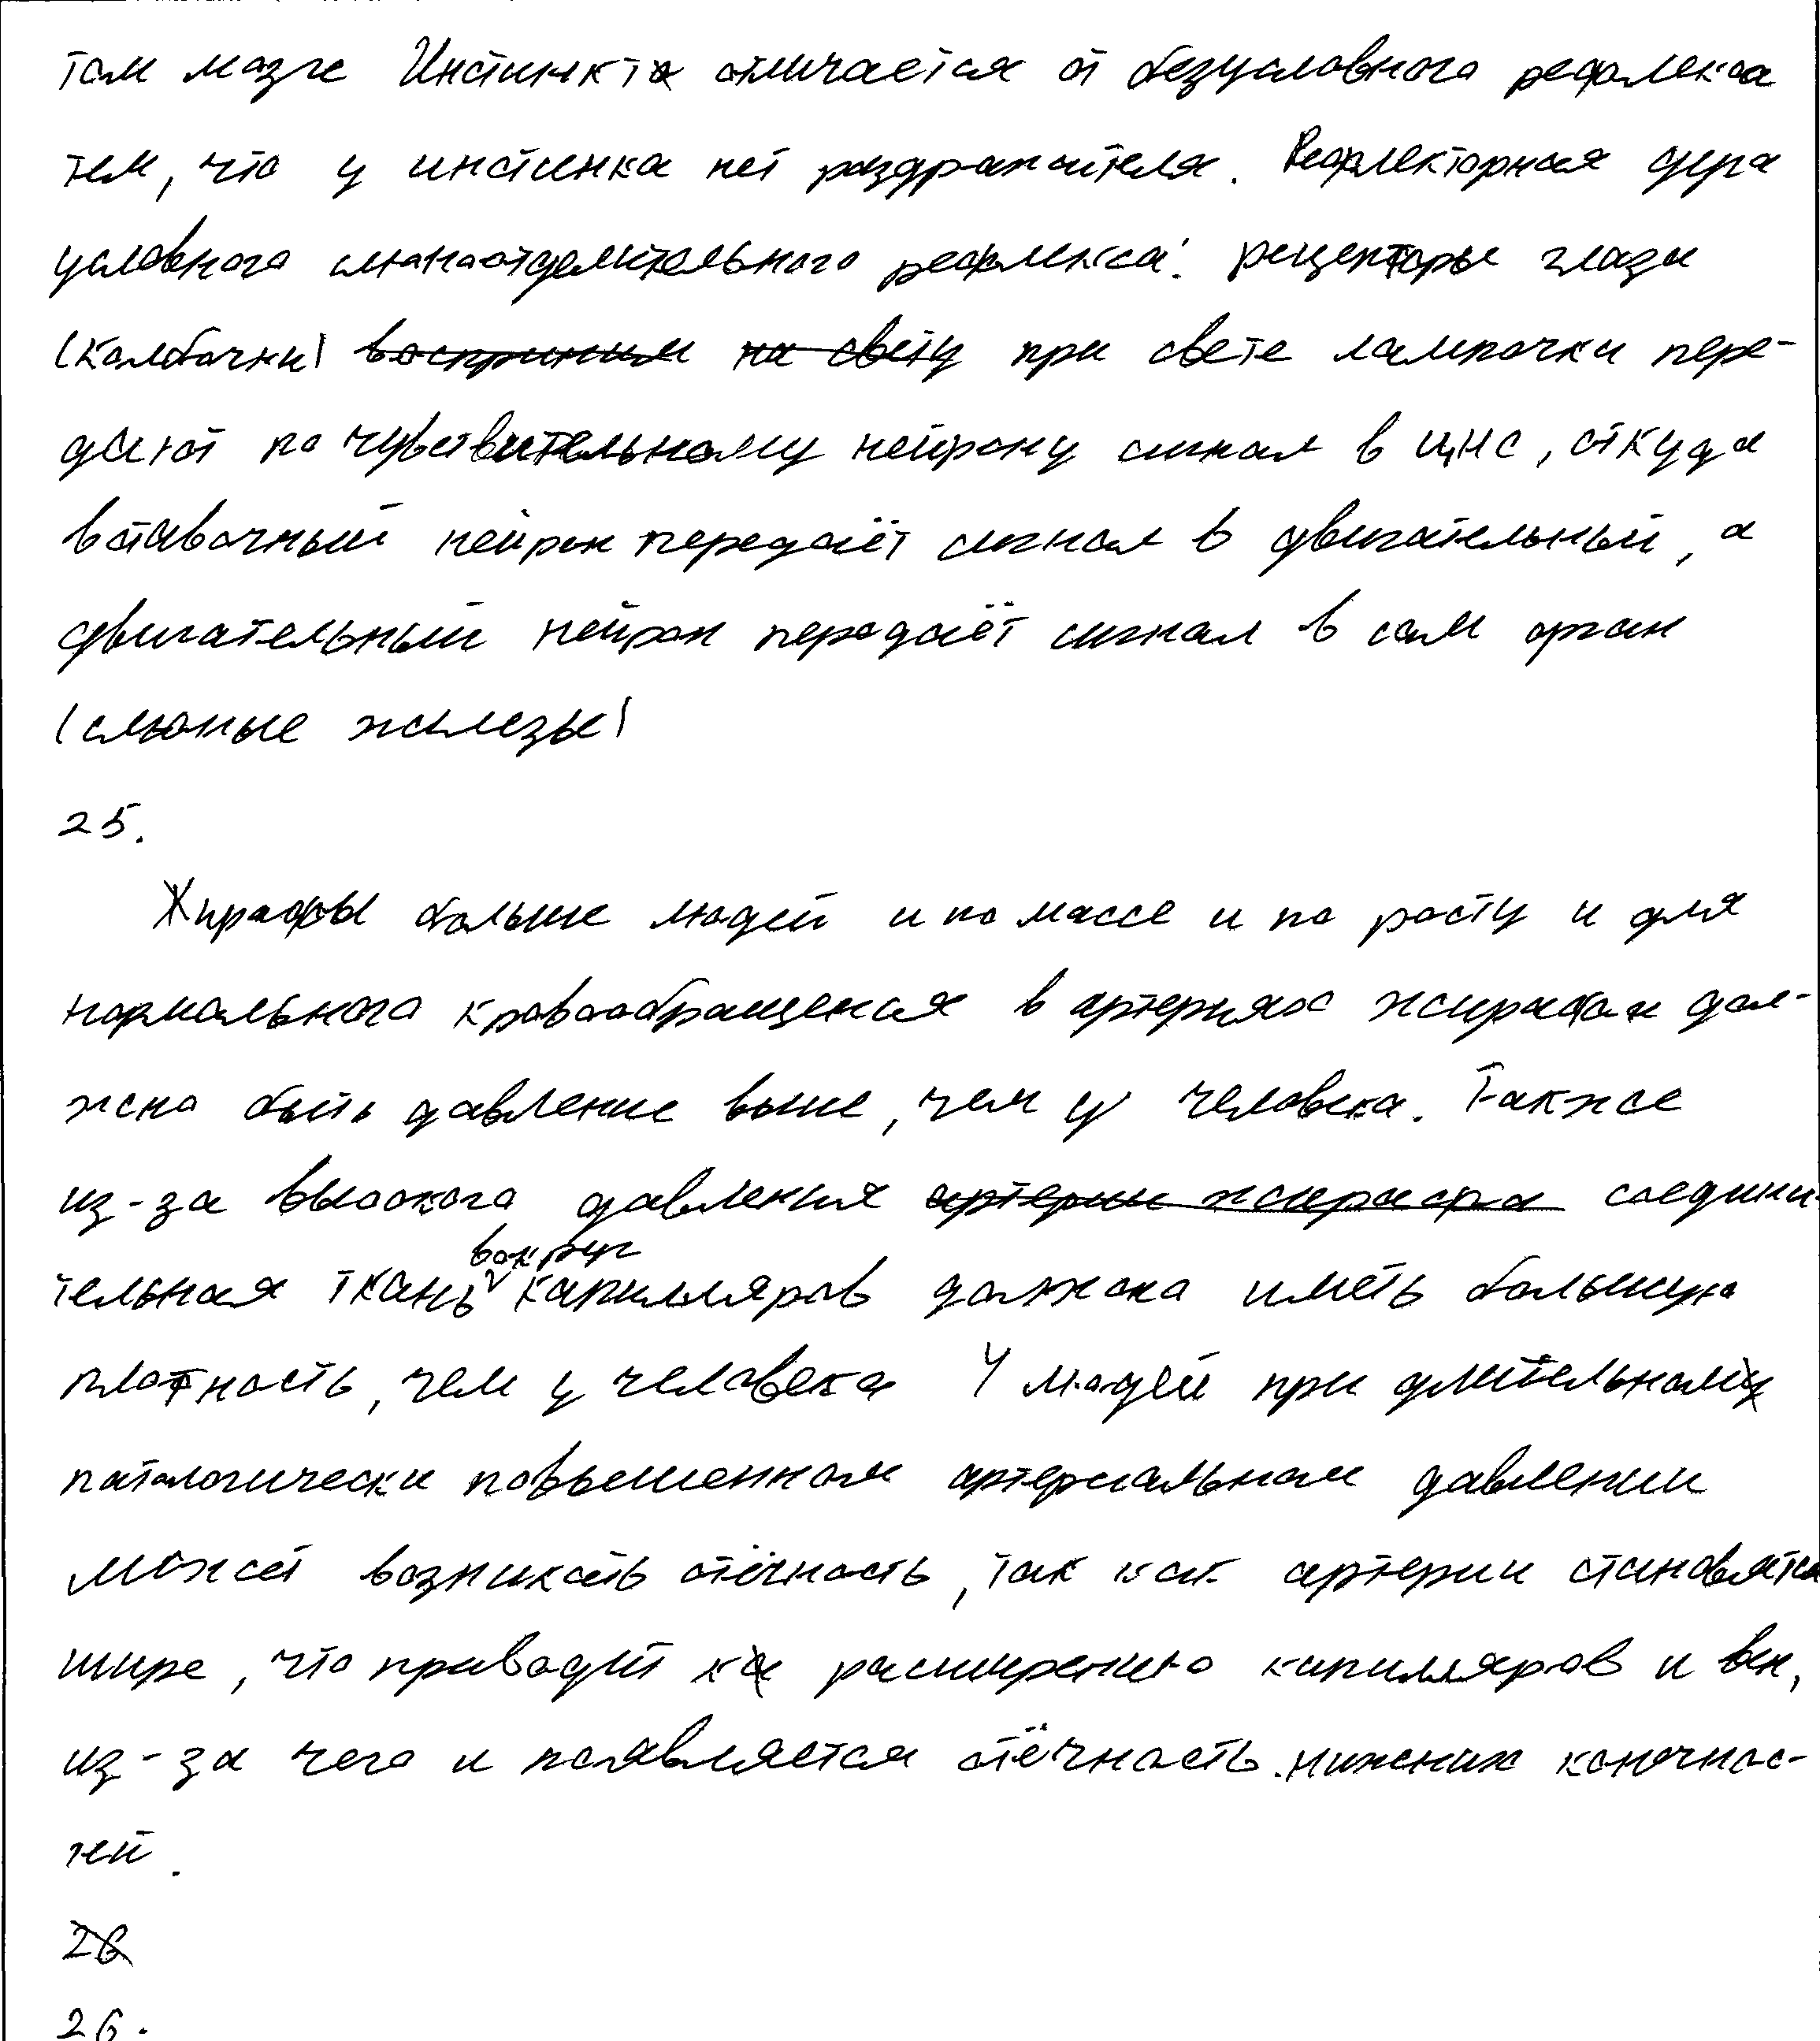 том мозге Инстинкт отличается от безусловного рефлекса
тем, что у инстинка нет раздражителя. Рефлекторная дуга
условного слюноотделительного рефлекса: рецепторы глаза
(колбочки) при свете лампочки пере-
дают по чувствительному нейрону сигнал в ЦНС, откуда
вставочный нейрон передаёт сигнал в двигательный, а
двигательный нейрон передаёт сигнал в сам орган
(слюные железы)
25.
Жирафы больше людей и по массе и по росту и для
нормального кровообращения в артериях жирафа дол-
жно быть давление выше, чем у человека. Также
из-за высокого давления соедини-
тельная ткань вокруг капилляров должна иметь большую
плотность, чем у человека У людей при длительном
патологически повышенном артериальном давлении
может возникать отёчность, так как артерии становятся
шире, что приводит к расширению капилляров и вен,
из-за чего и появляется отёчность нижних конечнос-
тей.
26.